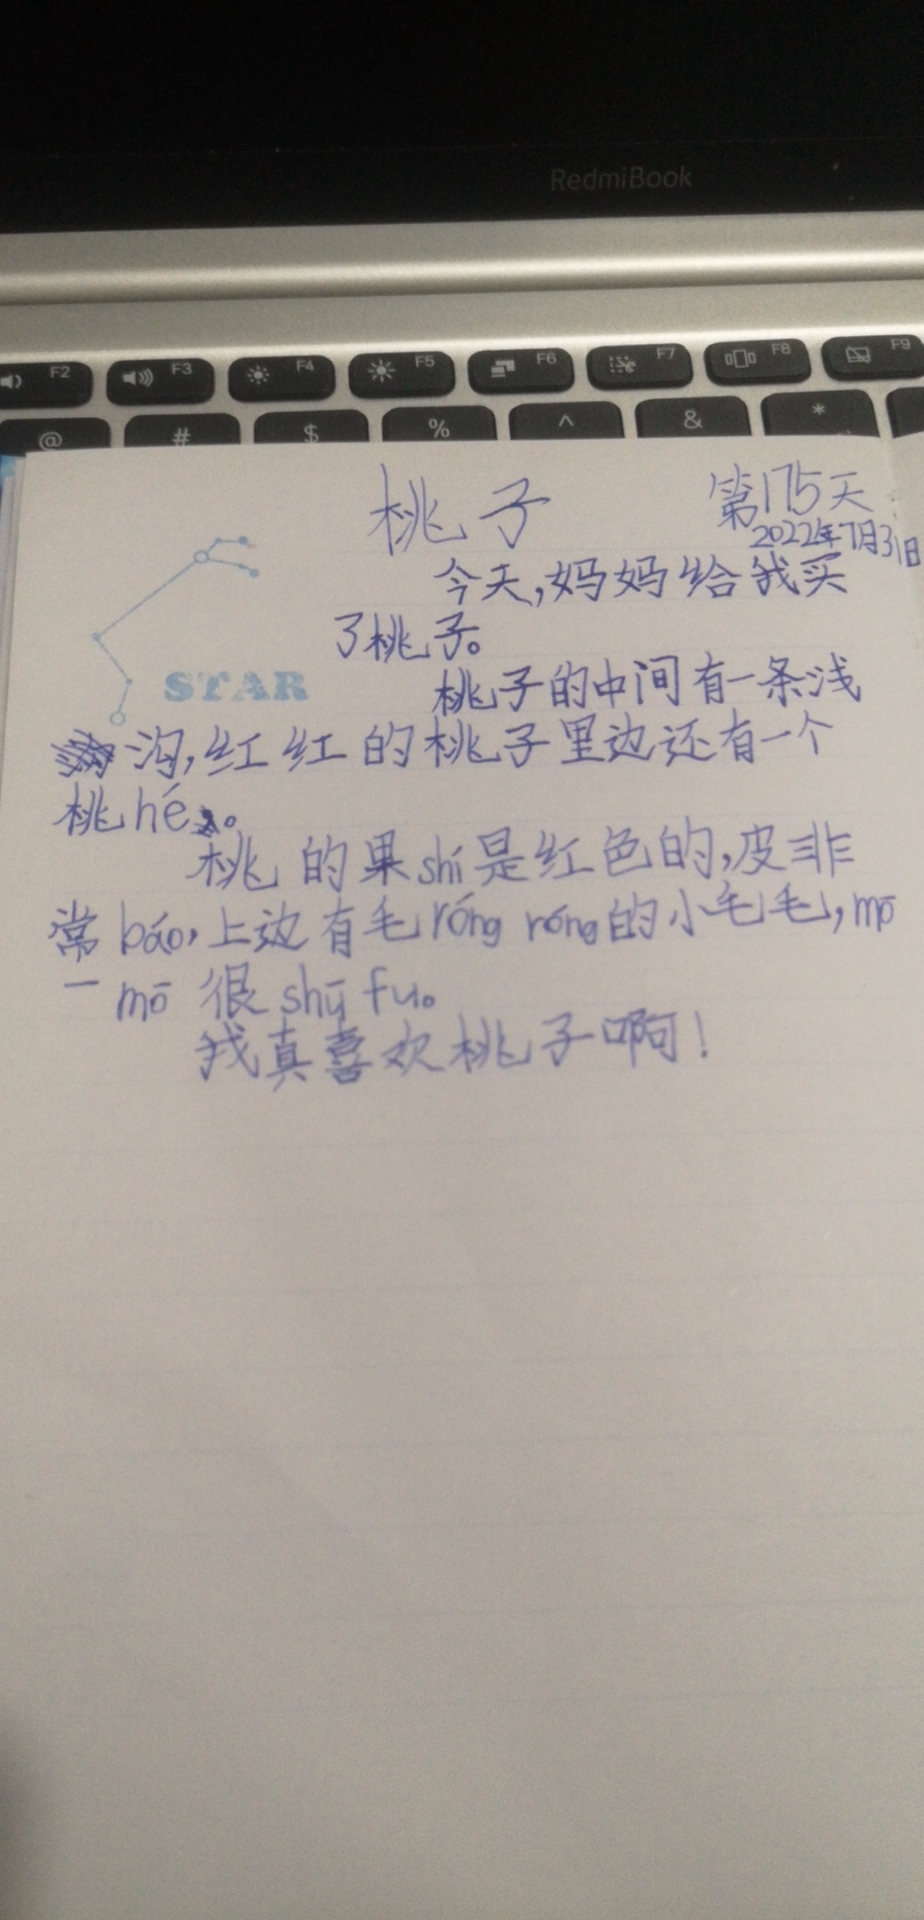 RedmiBook
F2 F3 F4 F5 F6 F7 F8 F9
@ # $ % ^ & *
桃子 第175天
2022年7月31日
今天,妈妈给我买
了桃子。
STAR
桃子的中间有一条浅
沟,红红的桃子里边还有一个
桃hé。
桃的果shí是红色的,皮非
常báo,上边有毛róng róng的小毛毛,mō
一mō很shū fu。
我真喜欢桃子啊!